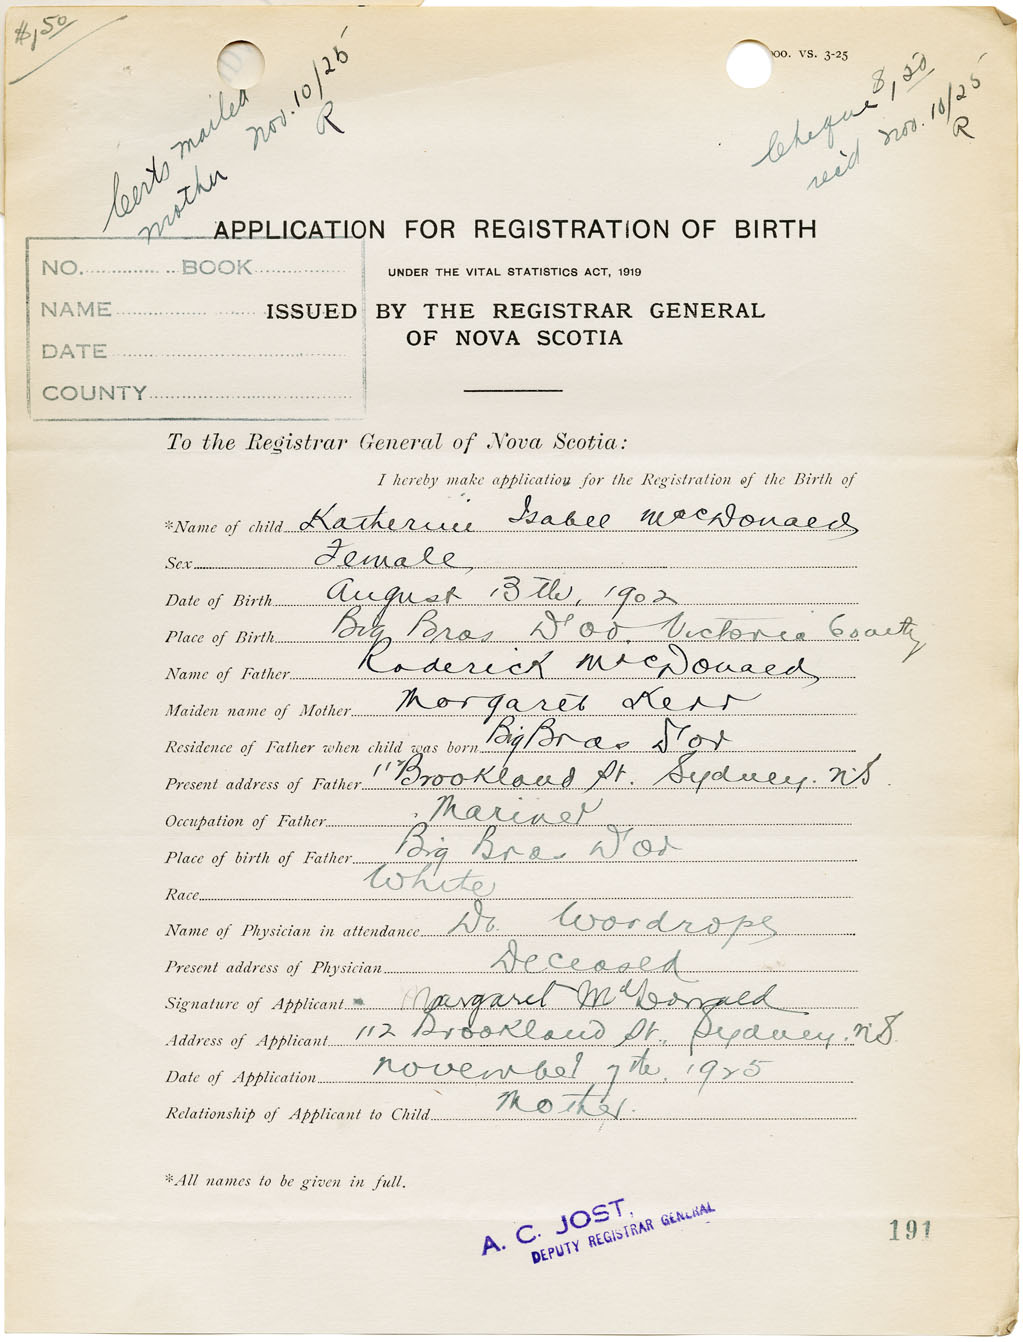 $1.50
00. VS. 3-25
Certs mailed
mother Nov. 10/25
R
Cheque $1.50
rec'd Nov. 10/25
R
APPLICATION FOR REGISTRATION OF BIRTH
UNDER THE VITAL STATISTICS ACT, 1919
ISSUED BY THE REGISTRAR GENERAL
OF NOVA SCOTIA
NO. BOOK
NAME
DATE
COUNTY
To the Registrar General of Nova Scotia:
I hereby make application for the Registration of the Birth of
*Name of child Katherine Isabel MacDonald
Sex Female
Date of Birth August 13th, 1902
Place of Birth Big Bras D'or, Victoria County
Name of Father Roderick MacDonald
Maiden name of Mother Margaret Kerr
Residence of Father when child was born Big Bras D'or
Present address of Father 112 Brookland St. Sydney. N.S
Occupation of Father Mariner
Place of birth of Father Big Bras D'or
Race White
Name of Physician in attendance Dr. Woodrope
Present address of Physician Deceased
Signature of Applicant Margaret McDonald
Address of Applicant 112 Brookland St., Sydney. N.S.
Date of Application November 7th, 1925
Relationship of Applicant to Child Mother.
*All names to be given in full.
A. C. JOST,
DEPUTY REGISTRAR GENERAL
191